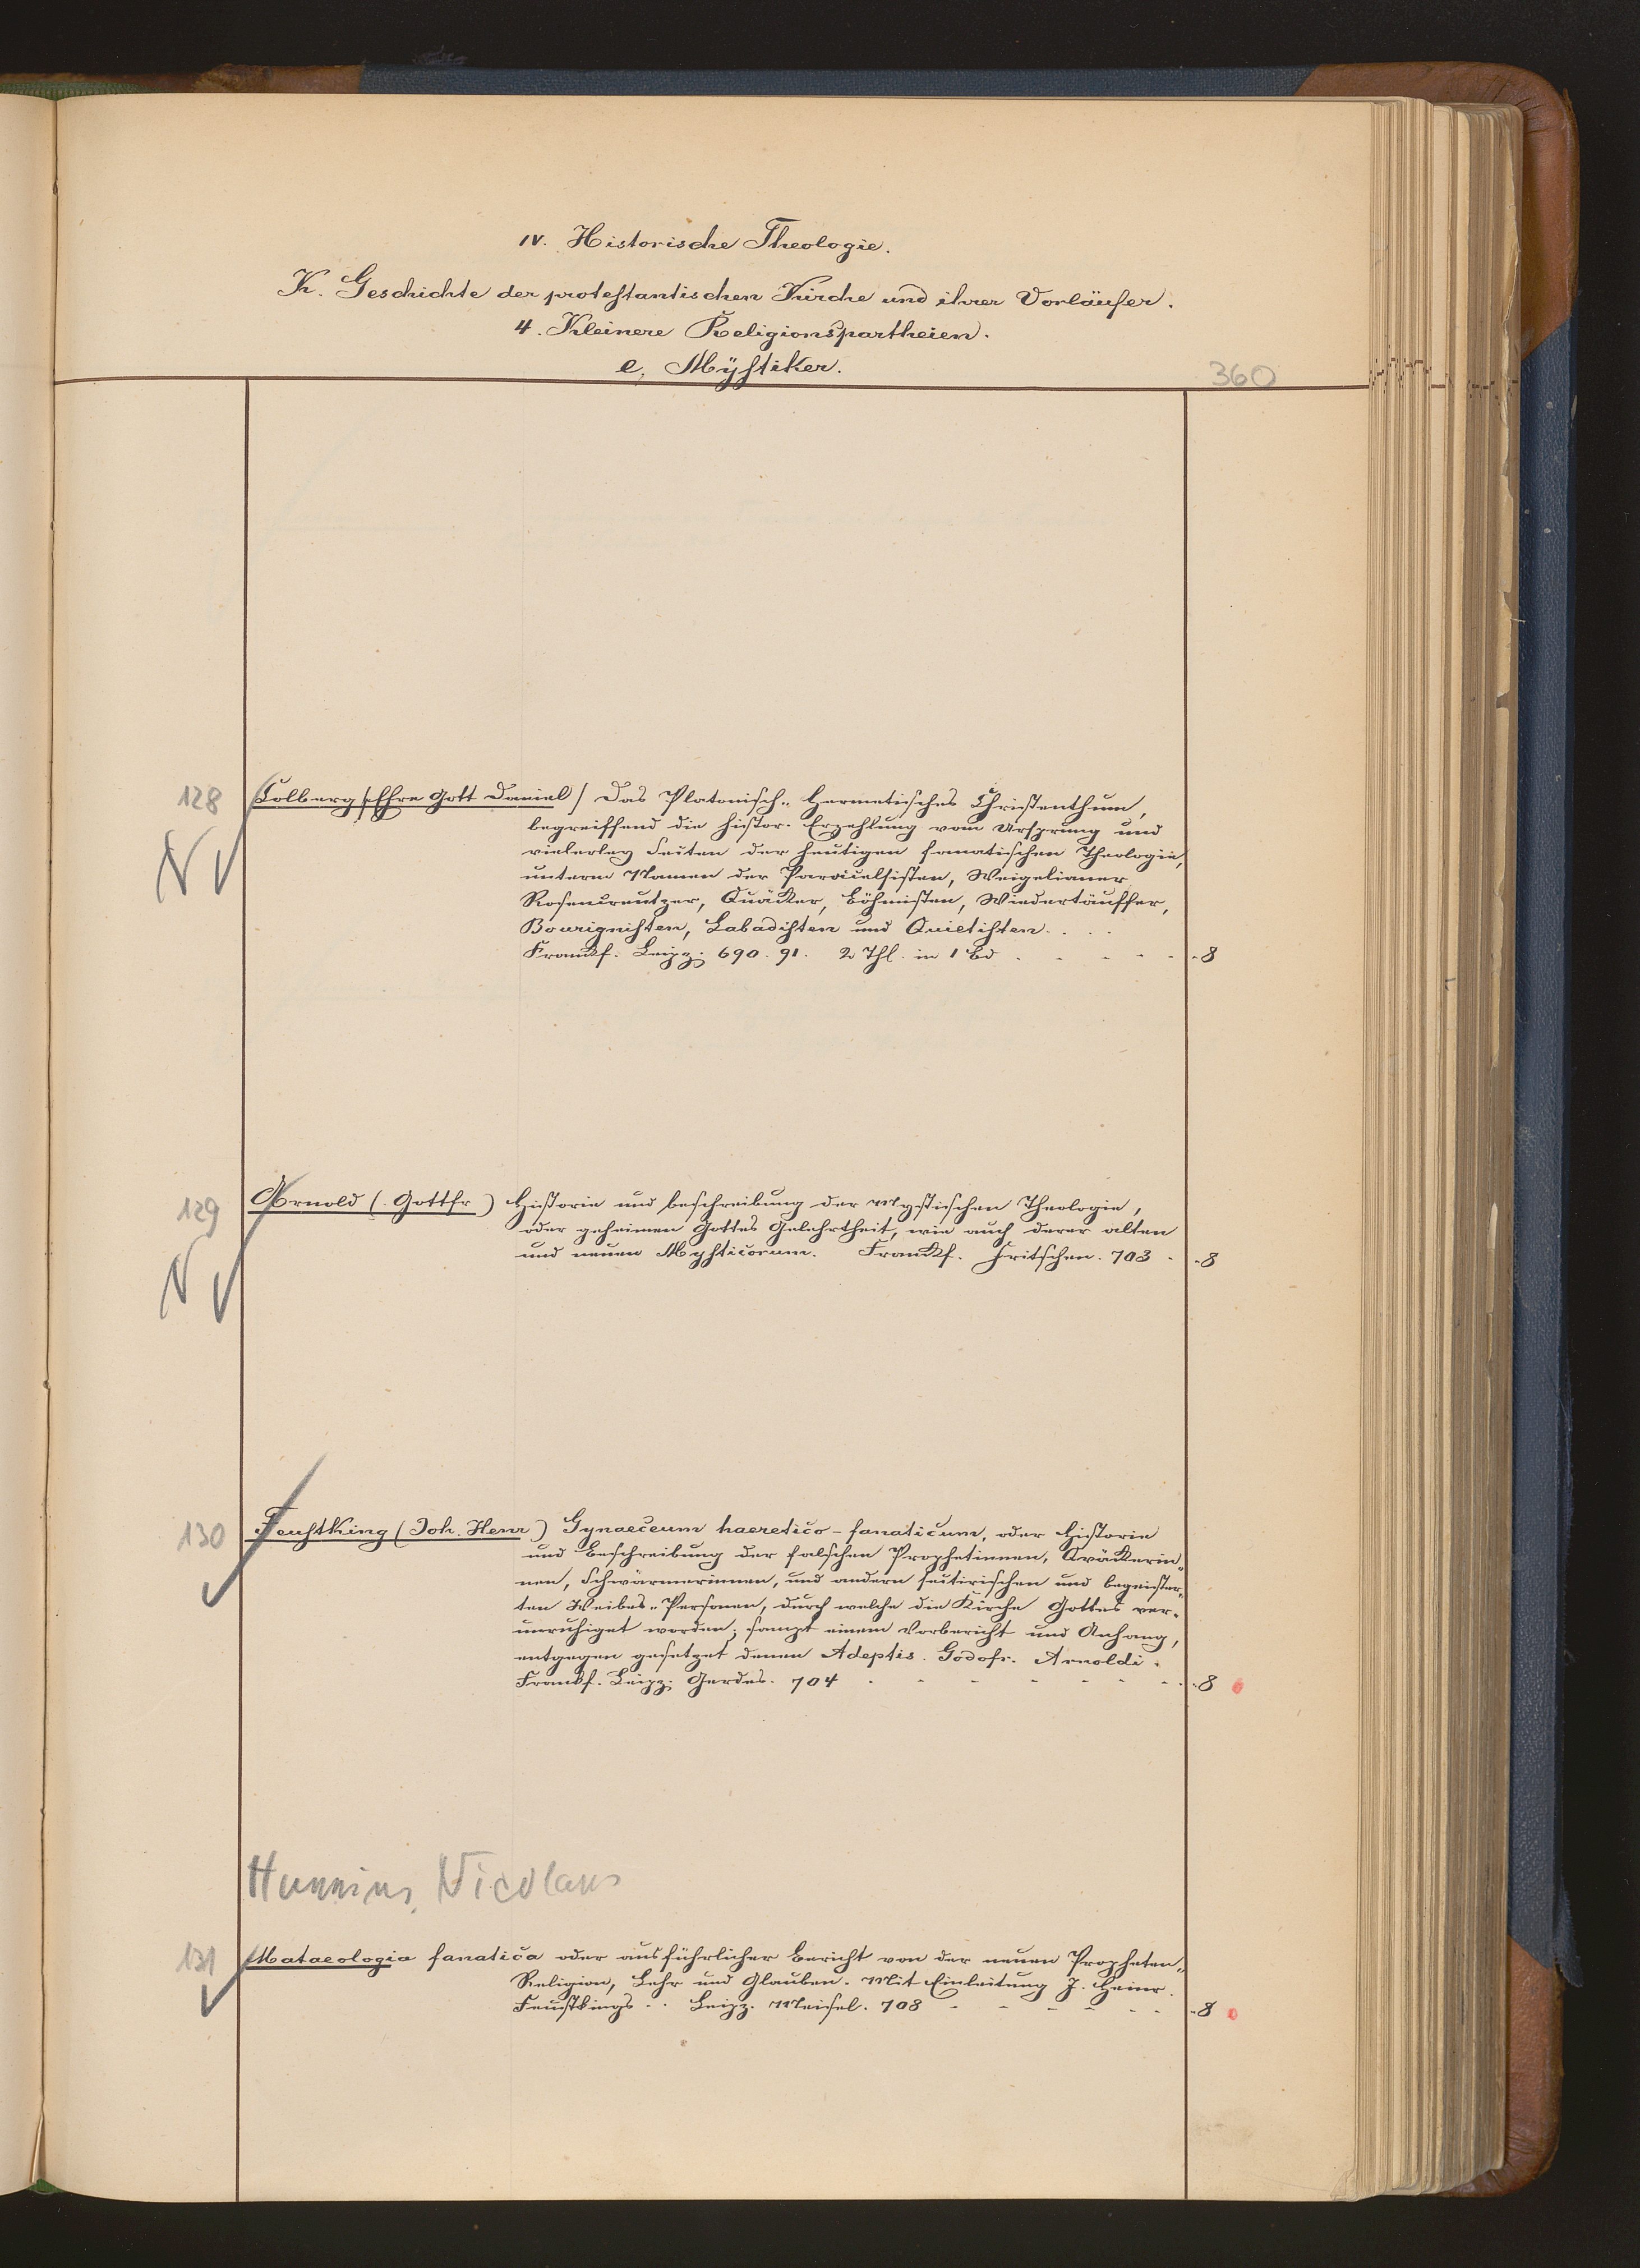 IV. Historische Theologie.
K. Geschichte der protestantischen Kirche und ihrer Vorläufer.
4. Kleinere Religionspartheien.
e, Mÿstiker.
360
128 Colberg (Ehre Gott Daniel) Das Platonisch-Hermetisches Christenthum,
begreiffend die histor. Erzehlung vom Ursprung und
vielerley Secten der heutigen fanatischen Theologie,
unterm Namen der Paracelsisten, Weigelianer
Rosencreutzer, Quäcker, Böhmisten, Wiedertäuffer,
N
Bourignisten, Labadisten und Quietisten . . .
Franckf. Leipz. 690. 91. 2 Thl. in 1 Bd . - - - - - 8
129 Arnold (Gottfr) Historie und beschreibung der Mystischen Theologie,
oder geheimen Gottes Gelehrtheit, wie auch derer alten
und neuen Mysticorum. Franckf. Fritschen. 703 - - 8
N
130 Feustking (Joh. Henr) Gynaeceum haeretico-fanaticum, oder Historie
und Beschreibung der falschen Prophetinnen, Qväckerin-
nen, Schwärmerinnen, und andern sectirischen und begeister-
ten Weibes-Personen, durch welche die Kirche Gottes ver-
unruhiget worden; sampt einem Vorbericht und Anhang,
entgegen gesetzet denen Adeptis. Godofr. Arnoldi.
Franckf. Leipz. Gerdes. 704 - - - - - - - 8
Hunnius, Nicolaus
131 Mataeologia fanatica oder ausführlicher Bericht von der neuen Propheten-
Religion, Lehr und Glauben. Mit Einleitung J. Heinr.
Feustkings . . Leipz. Meisel. 708 - - - - - - 8